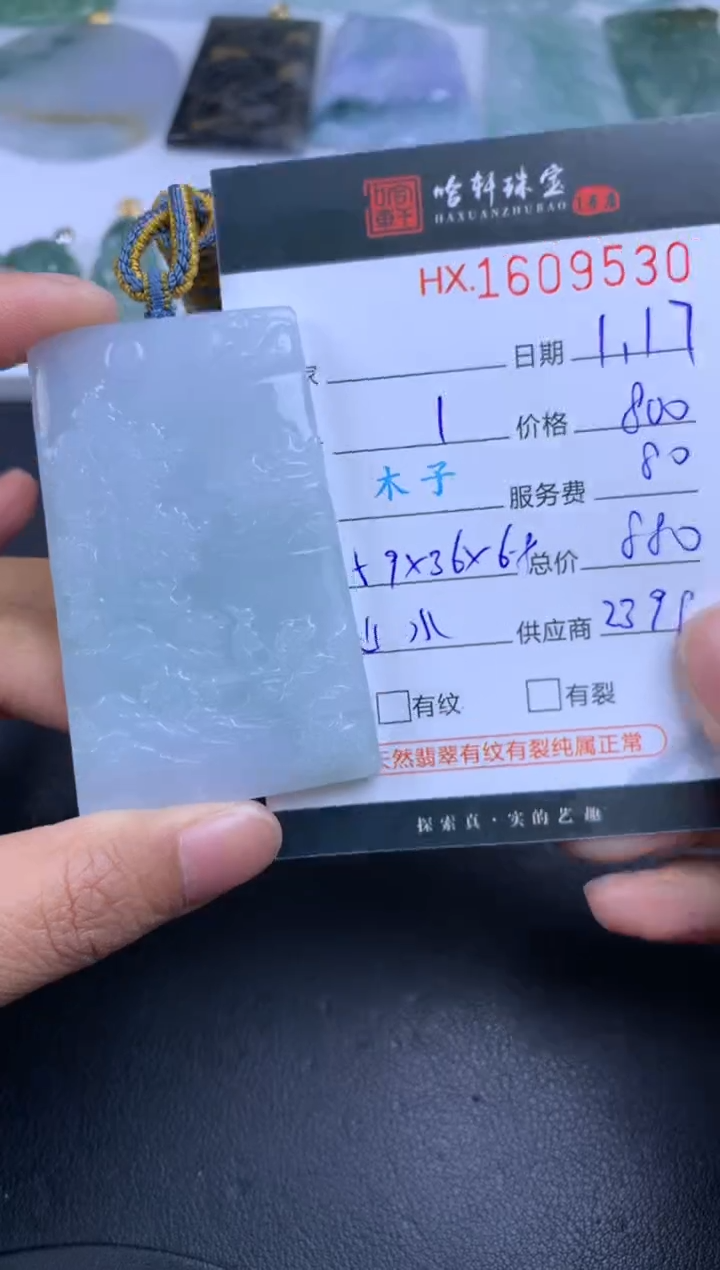 哈轩珠宝
HAXUANZHUBAO
HX.1609530
日期 1.17
1 价格 800
木子 服务费 80
9×36×6.8 总价 880
山水 供应商
有纹 有裂
天然翡翠有纹有裂纯属正常
探索真·实的艺趣